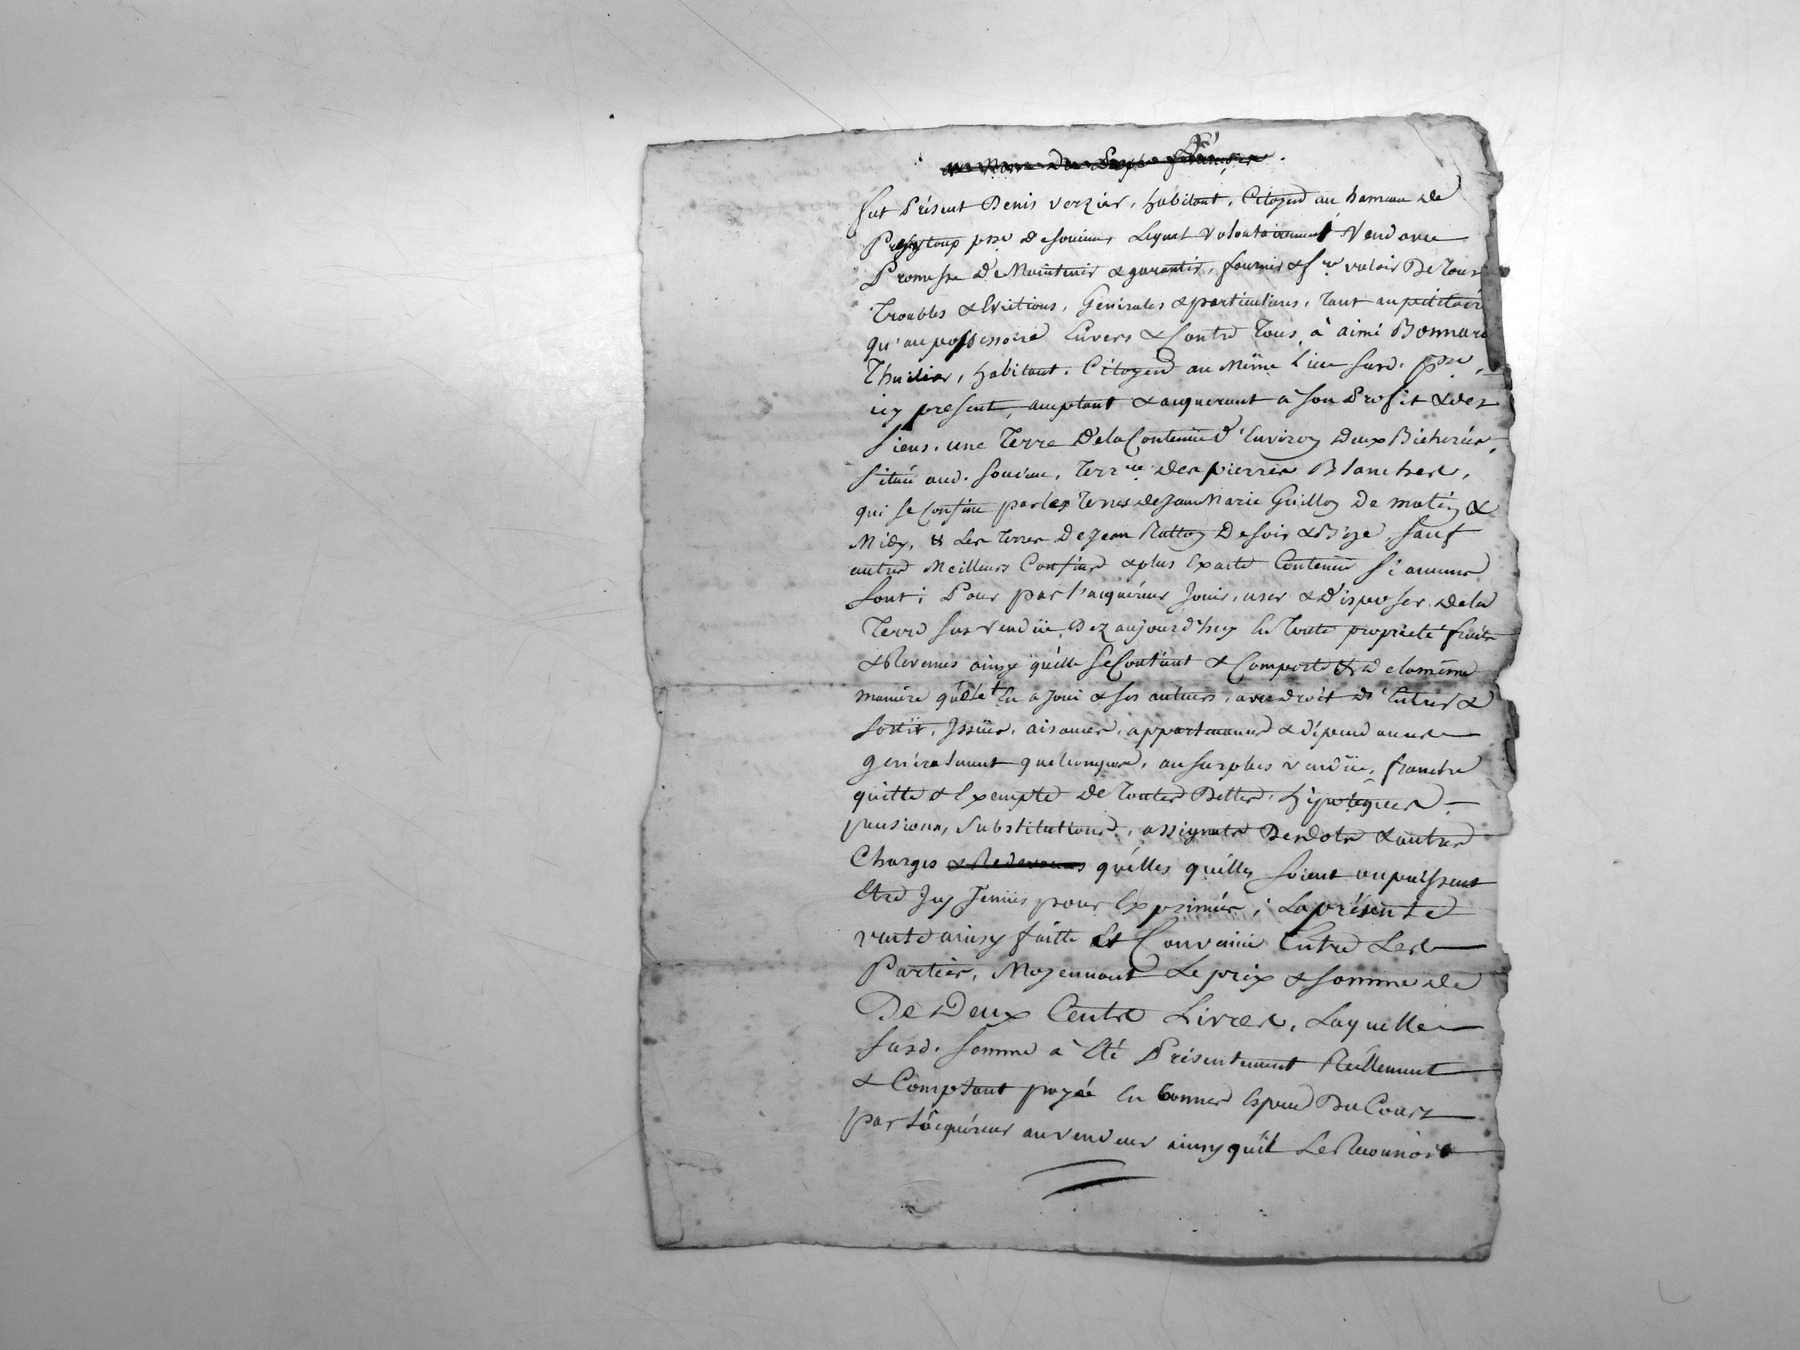 au Nom du Peuple français
fut Présent Denis verzier, habitant, Citoyen au hameau de
psse de soucieux Lequel volontairement Vend avec
Promesse de Maintenir & garantir, fournir & fre valoir De tous
Troubles & Evictions, Generales & particulieres, tant au pétitoire
qu'au possessoire Envers & Contre Tous, à aimé Bonnard
Thuilier, habitant, Citoyen au Même Lieu susd. psse,
icy present, acceptant & acquerant à Son Profit & des
Siens, une Terre De la Contenüe d'Environ Deux Bicherées,
Situéé aud. Terrre des pierres Blanches,
qui se Confine par les Terres de Jean Marie Guillon De matin &
Midy, & Les Terres De Jean De soir & Bize, sauf
autres Meilleurs Confins & plus Exacte Contenüe Si aucuns
Sont; Pour par l'acquéreur Jouir, user & Disposer de la
Terre sus vendüe, Dez aujourd'huy En Toute propriété fruits
& Revenus ainsy qu'elle Se Contient & Comporte & de la même
maniere qu'il En a Joui & ses auteurs, avec droit d'Entrer &
Sortir, Issües, aisances, appartenances & dépendances
généralement quelconques, au surplus vendüe, franche
quitte & Exempte de Toutes Dettes, hipoteques
pensions, Substitutions, assignats De dots & autres
Charges & Redevances qu'elles qu'elles soient ou puissent
Etre Icy Tenües pour Exprimées; La présente
vente ainsy faitte Et Convenüe Entre Les
Parties, Moyennant Le prix & somme de
De Deux Cents Livres, Laquelle
susd. somme à Eté Présentement Réellement
& Comptant payéé En bonnes Especes Du Cours
par L'acquéreur au vendeur ainsy qu'il Le Reconnoit